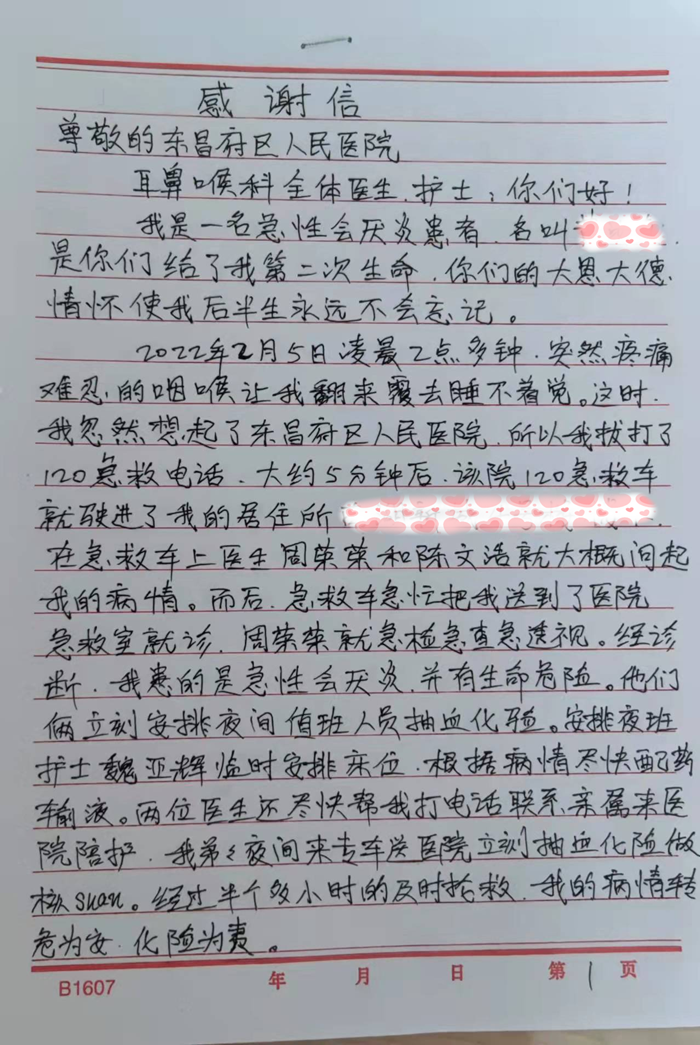 感谢信
尊敬的东昌府区人民医院
耳鼻喉科全体医生、护士：你们好！
我是一名急性会厌炎患者、名叫
是你们给了我第二次生命、你们的大恩大德
情怀使我后半生永远不会忘记。
2022年2月5日凌晨2点多钟、突然疼痛
难忍的咽喉让我翻来覆去睡不着觉。这时、
我忽然想起了东昌府区人民医院、所以我拔打了
120急救电话、大约5分钟后、该院120急救车
就驶进了我的居住所
在急救车上医生周荣荣和陈文浩就大概问起
我的病情。而后、急救车急忙把我送到了医院
急救室就诊、周荣荣就急检急查急透视。经诊
断、我患的是急性会厌炎、并有生命危险。他们
俩立刻安排夜间值班人员抽血化验。安排夜班
护士魏亚辉临时安排床位、根据病情尽快配药
输液。两位医生还尽快帮我打电话联系亲属来医
院陪护、我弟々夜间来专车送医院立刻抽血化险做
核suan。经过半个多小时的及时抢救、我的病情转
危为安、化险为夷。
B1607 年 月 日 第 1 页